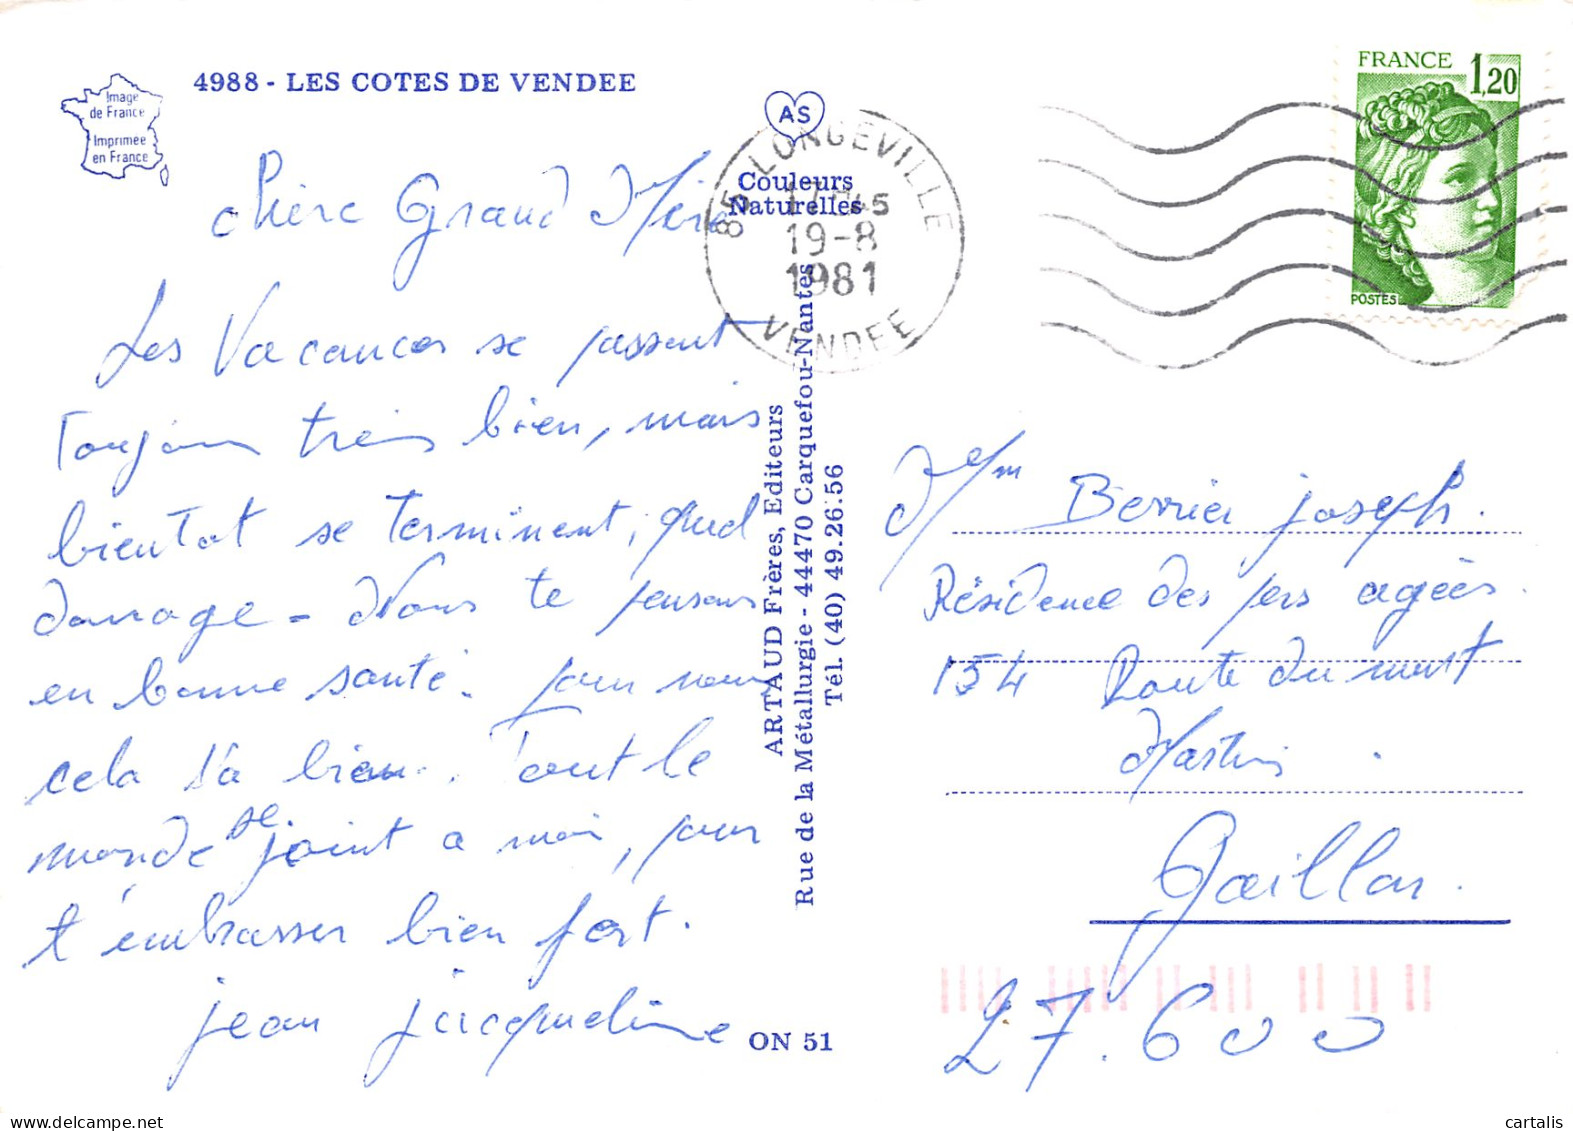 4988 - LES COTES DE VENDEE
Image
de France
Imprimée
en France
chère Grand Mère
Les Vacances se passent
Toujours très bien, mais
bientot se terminent, quel
dommage - Nous te pensons
en bonne santé. pour nous
cela va bien. Tout le
monde se joint a moi, pour
t'embrasser bien fort.
jean jacqueline
AS
Couleurs
Naturelles
ARTAUD Frères, Editeurs
Rue de la Métallurgie - 44470 Carquefou-Nantes
Tél. (40) 49.26.56
ON 51
85 LONGEVILLE
17H45
19-8
1981
VENDEE
FRANCE 1,20
POSTES
Berrier joseph.
Résidence des pers agées.
154 Route du mont
Martin.
Gaillon.
27.600
cartalis